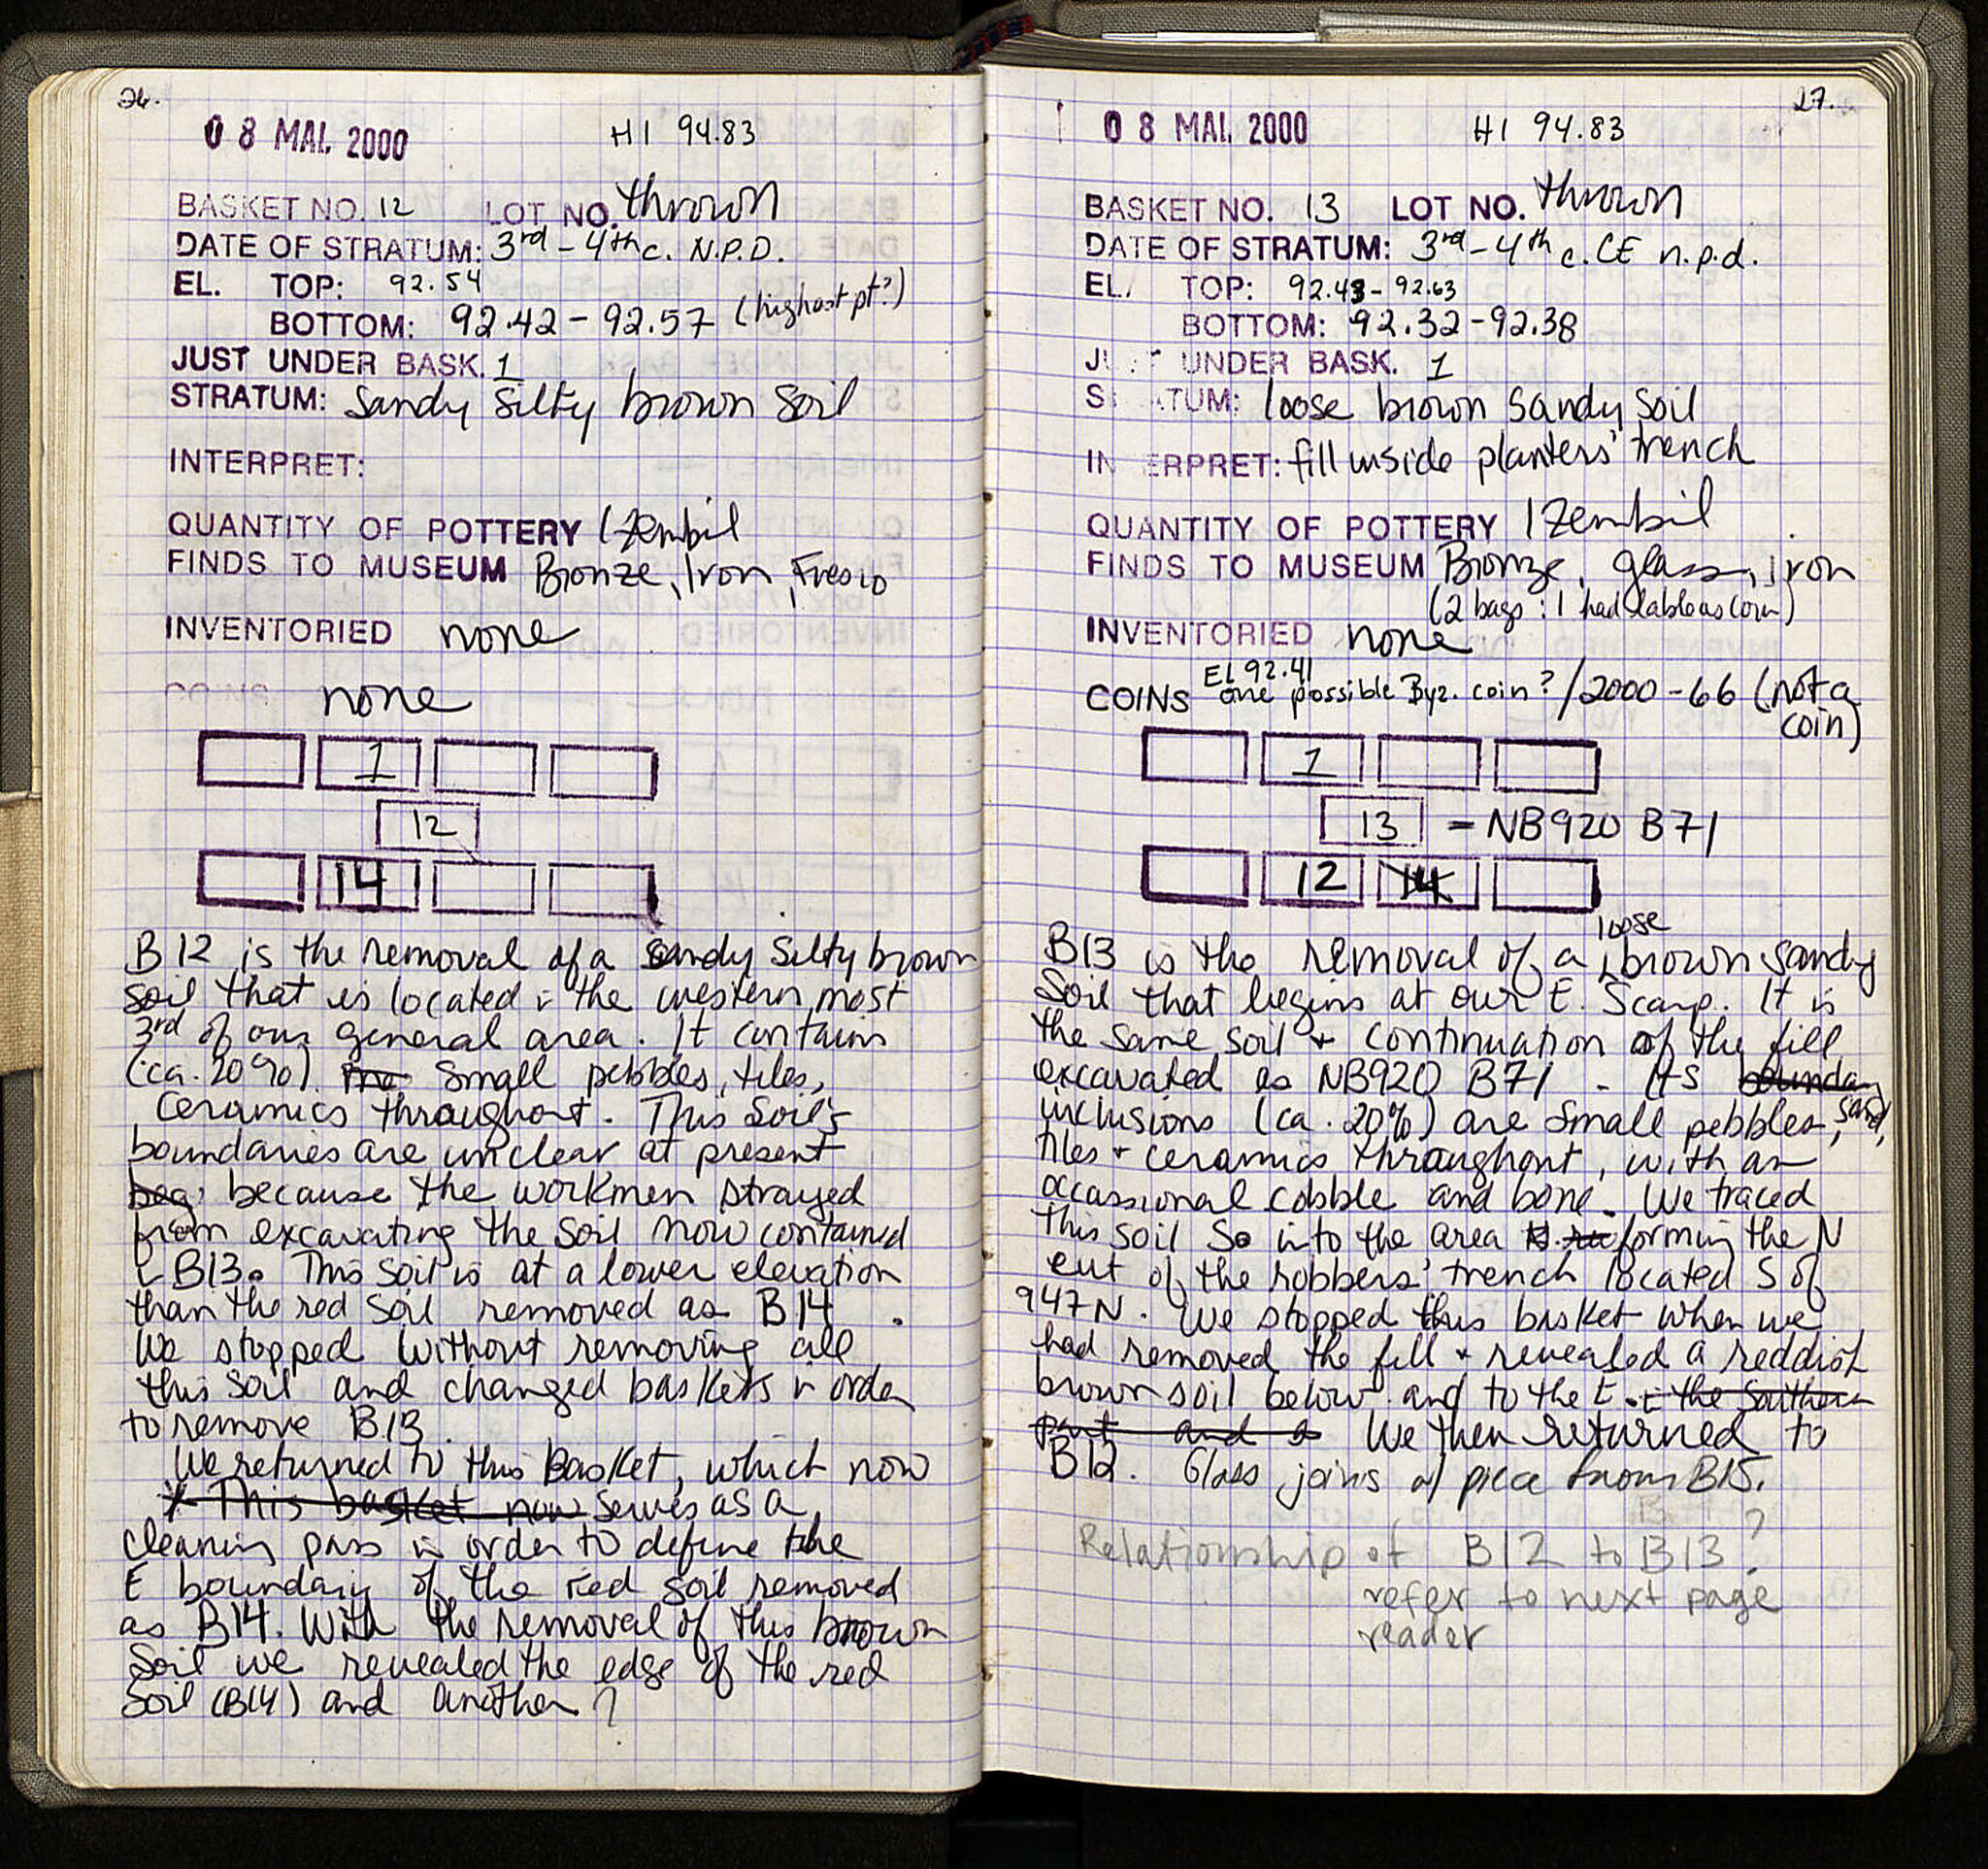 26.
08 MAI. 2000 HI 94.83
BASKET NO. 12 LOT NO. thrown
DATE OF STRATUM: 3rd-4th c. N.P.D.
EL. TOP: 92.54
BOTTOM: 92.42-92.57 (highest pt?)
JUST UNDER BASK. 1
STRATUM: Sandy silty brown soil
INTERPRET:
QUANTITY OF POTTERY 1 Zembil
FINDS TO MUSEUM Bronze, Iron, Fresco
INVENTORIED none
COINS none
1
12
14
B12 is the removal of a sandy silty brown
soil that is located in the western most
3rd of our general area. It contains
(ca. 20%) small pebbles, tiles,
ceramics throughout. This soil's
boundaries are unclear at present
because the workmen strayed
from excavating the soil now contained
in B13. This soil is at a lower elevation
than the red soil removed as B14.
We stopped without removing all
this soil and changed baskets in order
to remove B13.
We returned to this Basket, which now
* This basket now serves as a
cleaning pass in order to define the
E boundary of the red soil removed
as B14. With the removal of this brown
soil we revealed the edge of the red
soil (B14) and another ?
27.
08 MAI. 2000 HI 94.83
BASKET NO. 13 LOT NO. thrown
DATE OF STRATUM: 3rd-4th c. CE n.p.d.
EL. TOP: 92.43-92.63
BOTTOM: 92.32-92.38
JUST UNDER BASK. 1
STRATUM: loose brown sandy soil
INTERPRET: fill inside planters' trench
QUANTITY OF POTTERY 1 Zembil
FINDS TO MUSEUM Bronze, glass, iron
(2 bags: 1 had lable as coin)
INVENTORIED none
El 92.41
COINS one possible Byz. coin? /2000-66 (not a
coin)
1
13 = NB920 B71
12 14
loose
B13 is the removal of a brown sandy
soil that begins at our E. Scarp. It is
the same soil + continuation of the fill
excavated as NB920 B71. Its bounda
inclusions (ca. 20%) are small pebbles, sand,
tiles + ceramics throughout, with an
occassional cobble and bone. We traced
this soil So into the area forming the N
cut of the robbers' trench located S of
947N. We stopped this basket when we
had removed the fill + revealed a reddish
brown soil below and to the E. the Southern
part and We then returned to
B12. Glass joins w/ piece from B15.
Relationship of B12 to B13?
refer to next page
reader